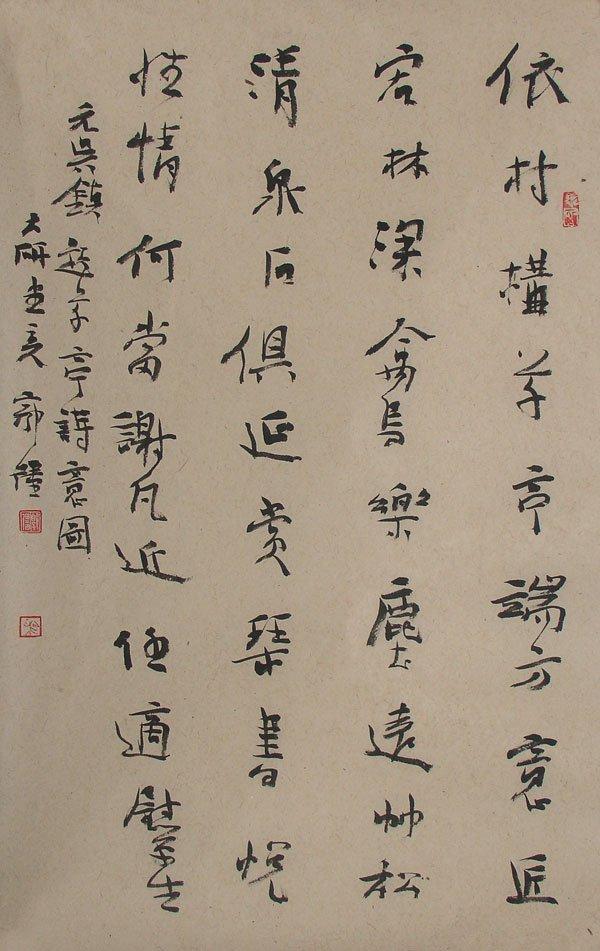 依村構草亭端方意匠
宏林深禽鳥樂塵遠竹松
清泉石俱延賞琴書悅
性情何當謝凡近任適慰平生
元吳鎮草亭詩意圖
大研郭